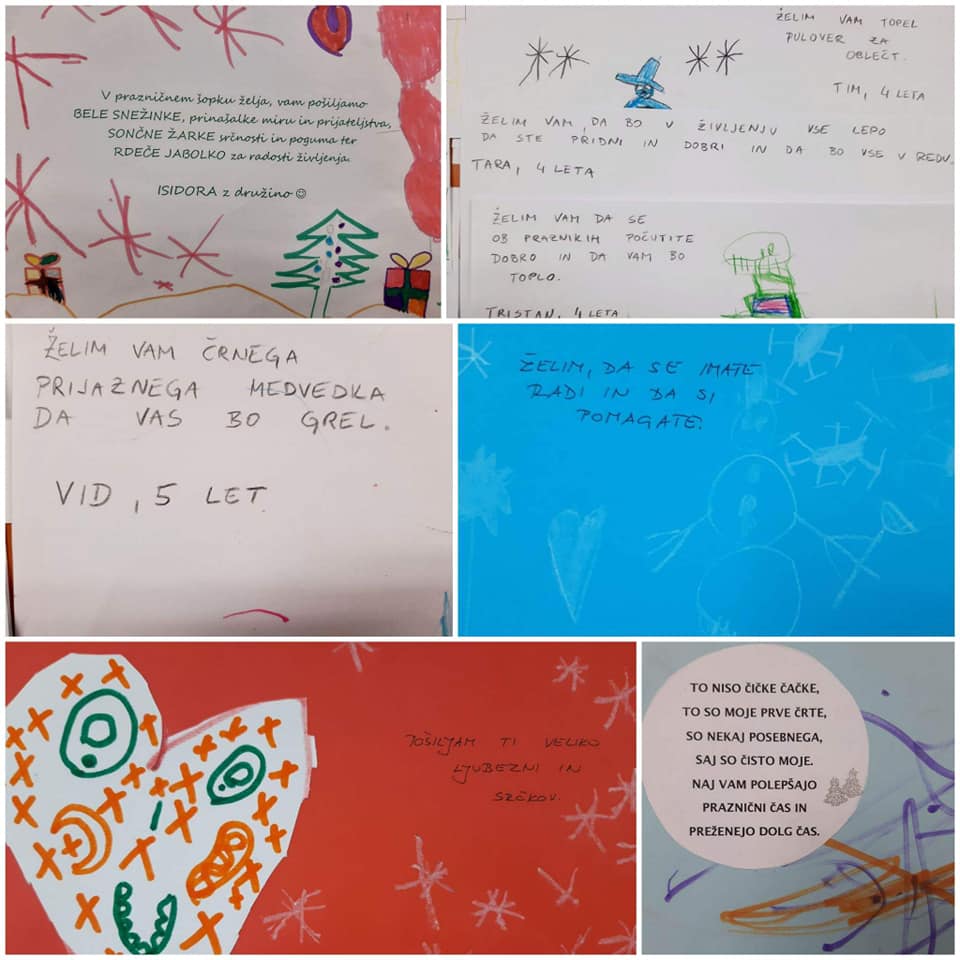 V prazničnem šopku želja, vam pošiljamo
BELE SNEŽINKE, prinašalke miru in prijateljstva,
SONČNE ŽARKE srčnosti in poguma ter
RDEČE JABOLKO za radosti življenja.
ISIDORA z družino ☺
ŽELIM VAM TOPEL
PULOVER ZA
OBLEČT.
TIM, 4 LETA
ŽELIM VAM, DA BO V ŽIVLJENJU VSE LEPO
DA STE PRIDNI IN DOBRI IN DA BO VSE V REDU.
TARA, 4 LETA
ŽELIM VAM DA SE
OB PRAZNIKIH POČUTITE
DOBRO IN DA VAM BO
TOPLO.
TRISTAN, 4 LETA
ŽELIM VAM ČRNEGA
PRIJAZNEGA MEDVEDKA
DA VAS BO GREL.
VID, 5 LET
ŽELIM, DA SE IMATE
RADI IN DA SI
POMAGATE.
POŠILJAM TI VELIKO
LJUBEZNI IN
SRČKOV.
TO NISO ČIČKE ČAČKE,
TO SO MOJE PRVE ČRTE,
SO NEKAJ POSEBNEGA,
SAJ SO ČISTO MOJE.
NAJ VAM POLEPŠAJO
PRAZNIČNI ČAS IN
PREŽENEJO DOLG ČAS.